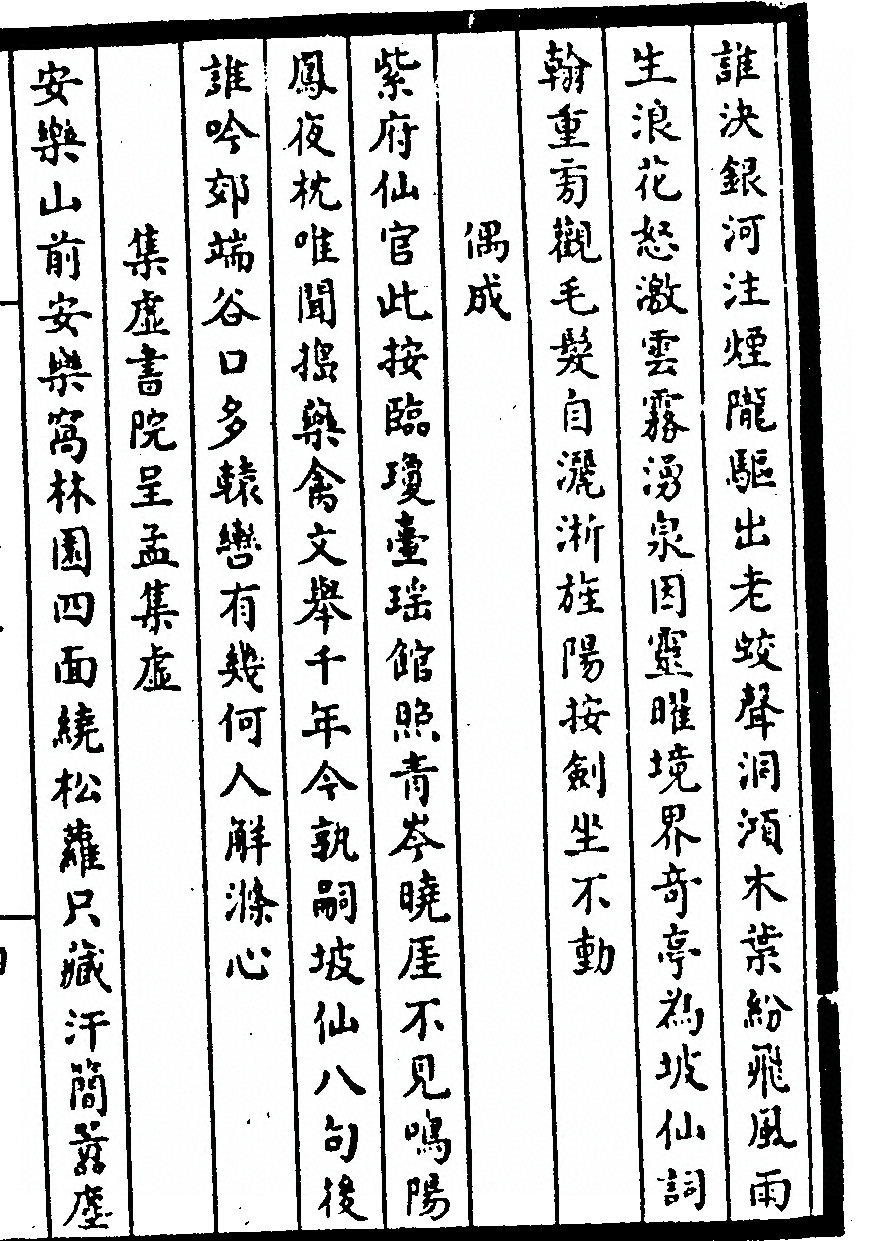 誰決銀河注煙隴驅出老蛟聲洞澒木葉紛飛風雨
生浪花怒激雲霧湧泉因靈曜境界奇亭為坡仙詞
翰重旁觀毛髮自灑淅旌陽按劍坐不動
偶成
紫府仙官此按臨瓊臺瑤館照青岑曉厓不見鳴陽
鳳夜枕唯聞搗藥禽文舉千年今孰嗣坡仙八句後
誰吟郊端谷口多轅轡有幾何人解滌心
集虛書院呈孟集虛
安樂山前安樂窩林園四面繞松蘿只藏汗簡嚣塵